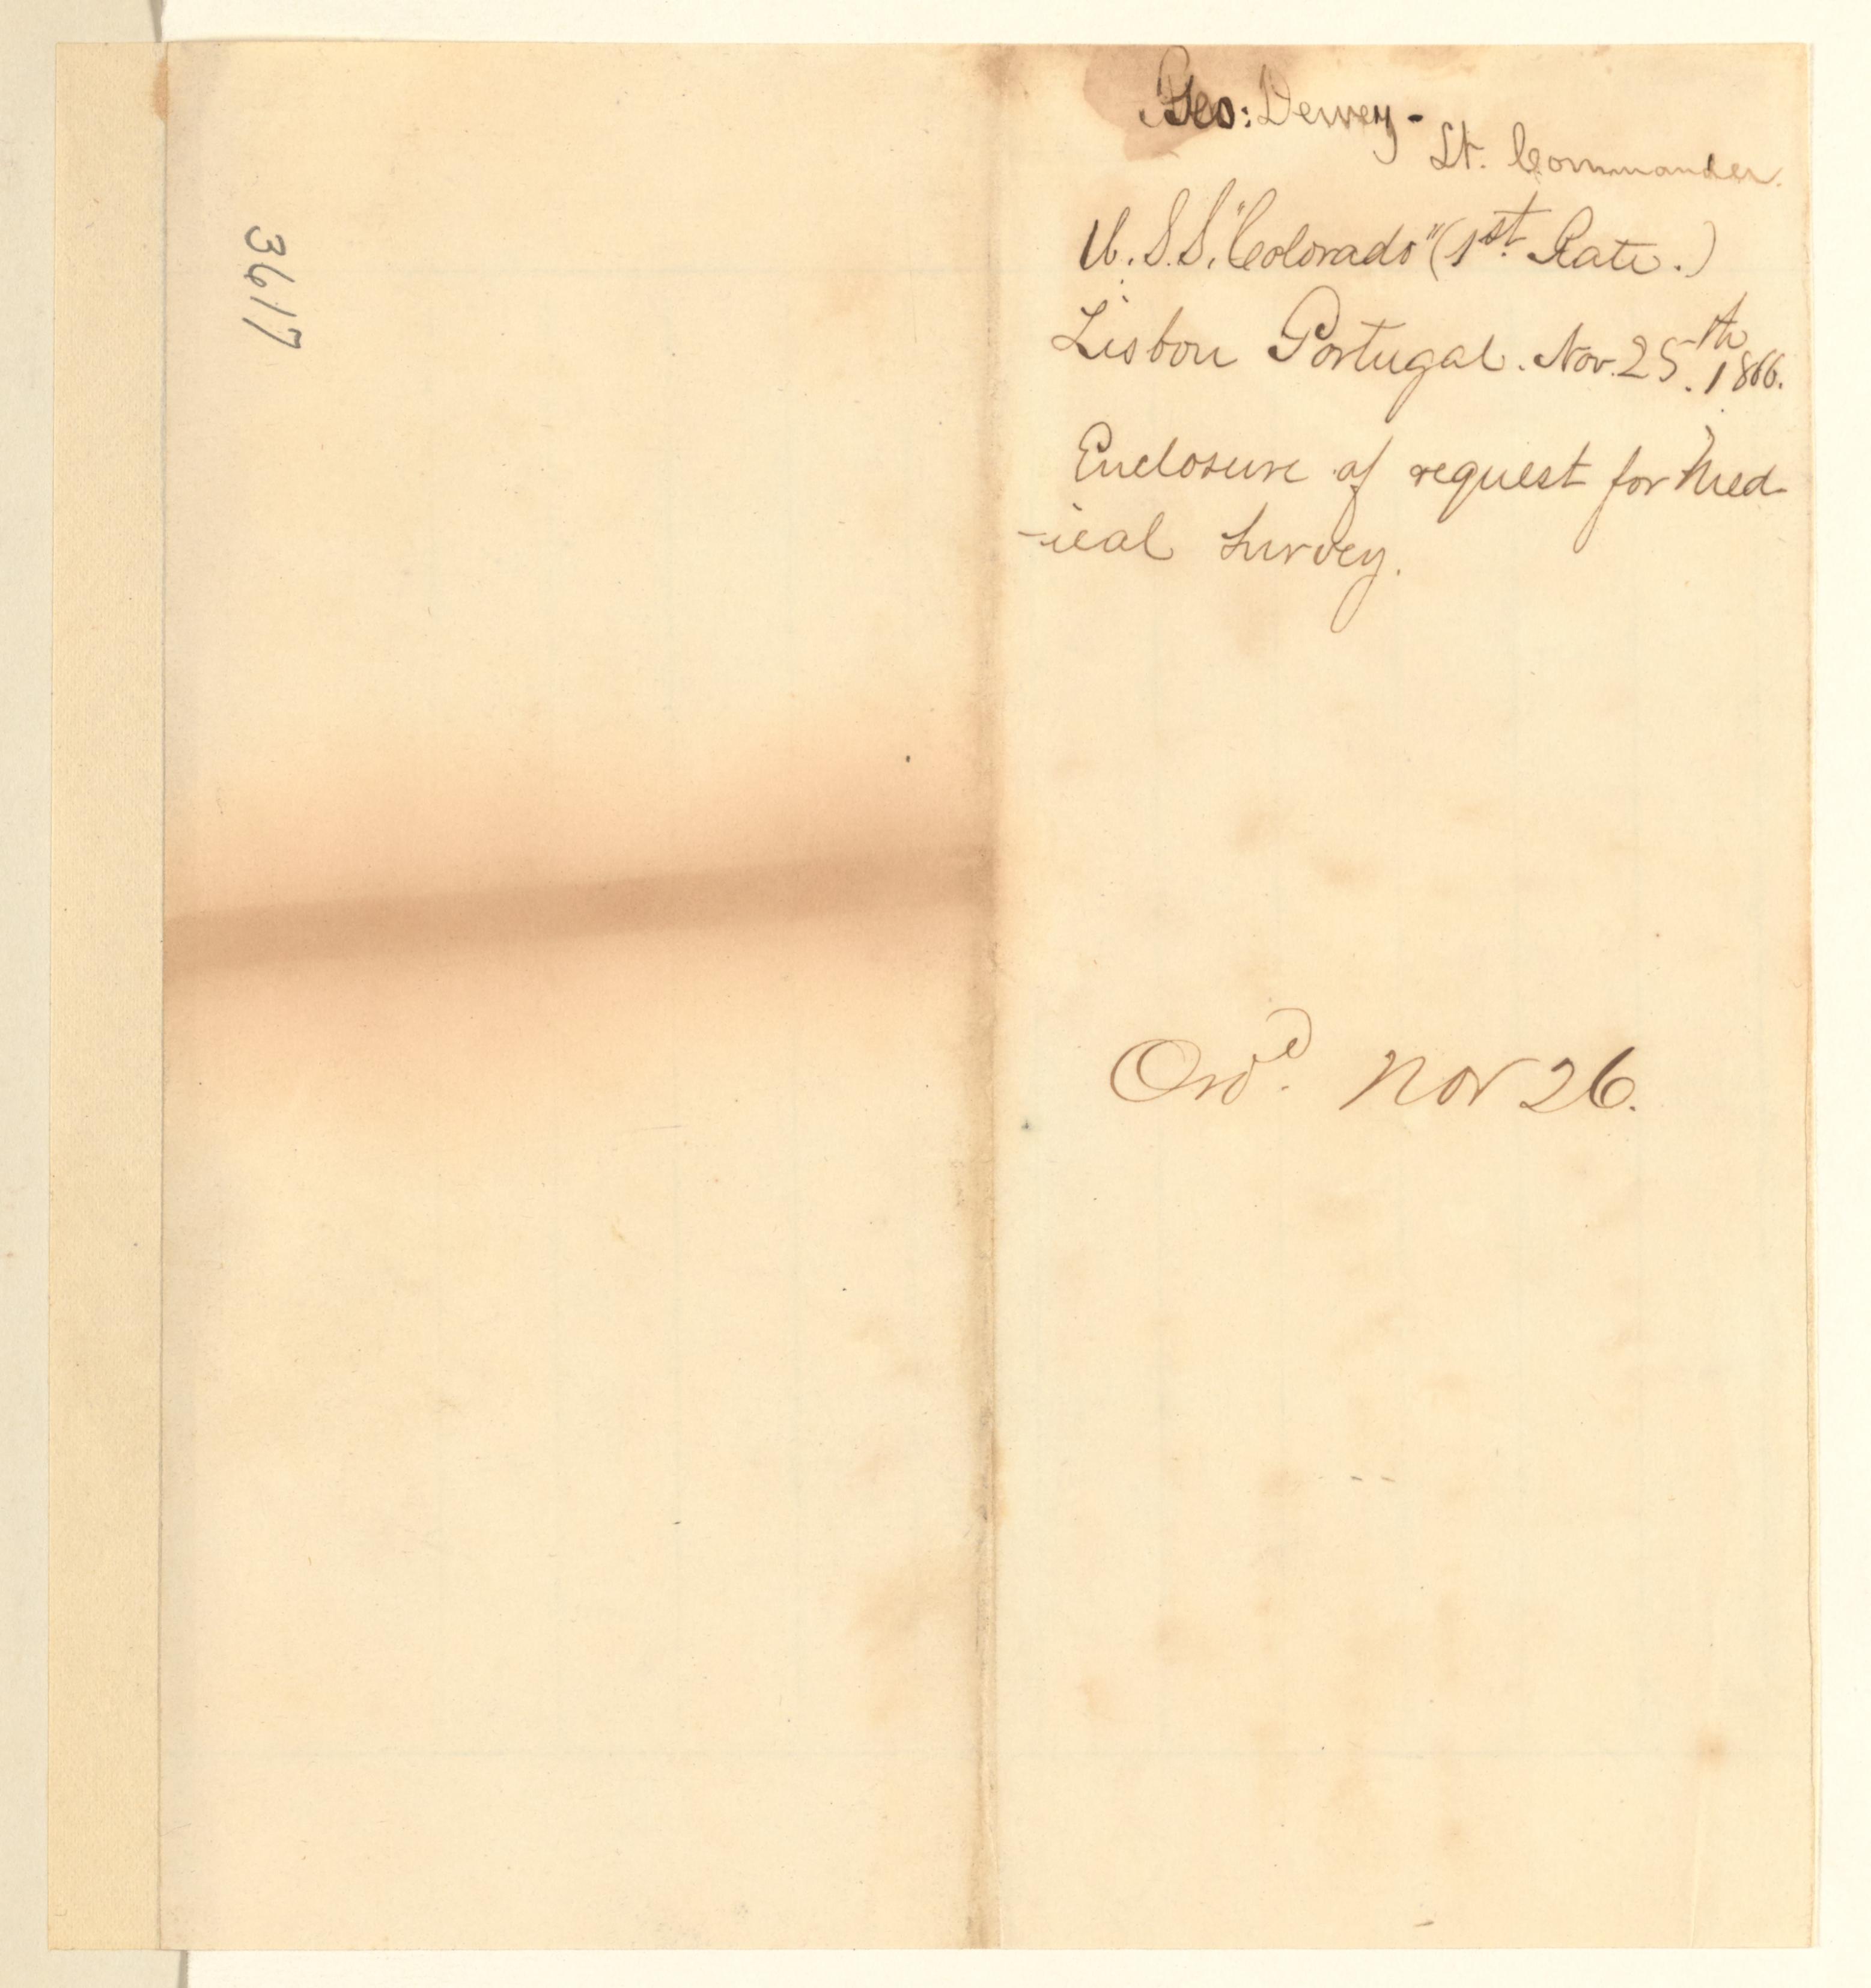 Geo: Dewey -
Lt. Commander.
U.S.S. "Colorado" (1st Rate.)
Lisbon Portugal. Nov. 25th. 1866.
Enclosure of request for Med-
-ical Survey.
Ord. Nov 26.
3617